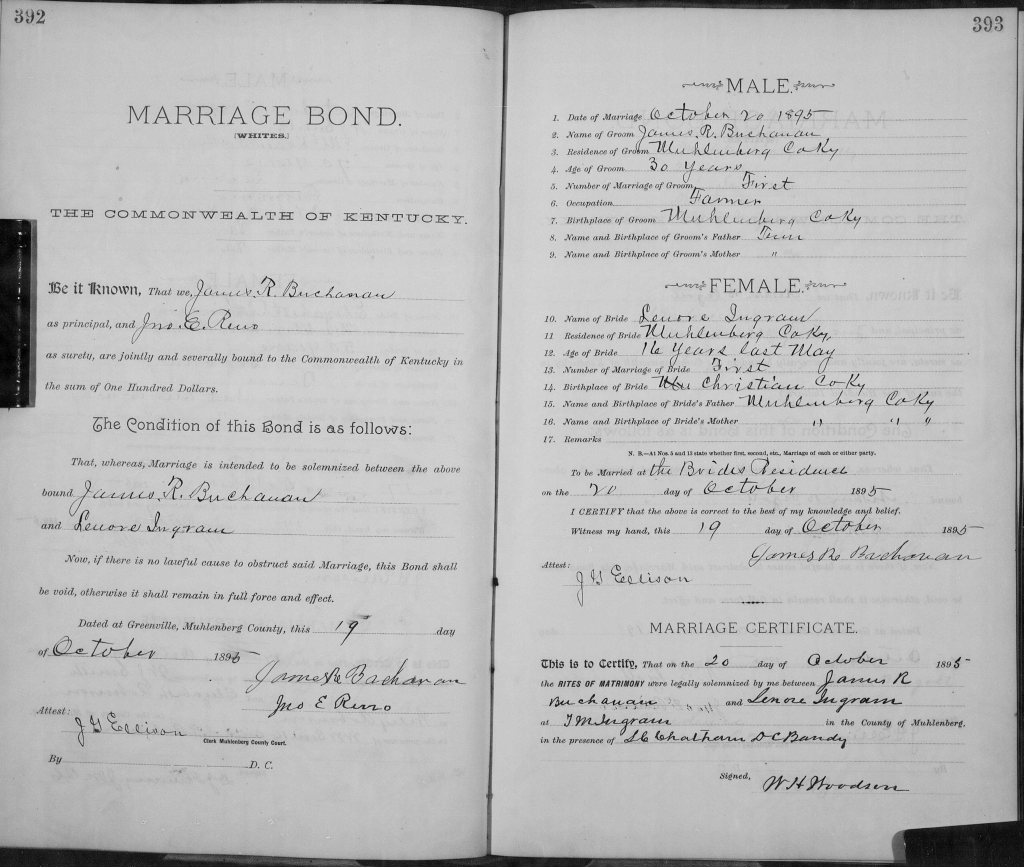 392
MARRIAGE BOND.
[WHITES.]
THE COMMONWEALTH OF KENTUCKY.
Be it Known, That we, James R. Buchanan
as principal, and Jno. E. Reno
as surety, are jointly and severally bound to the Commonwealth of Kentucky in
the sum of One Hundred Dollars.
The Condition of this Bond is as follows:
That, whereas, Marriage is intended to be solemnized between the above
bound James. R. Buchanan
and Lenore Ingram
Now, if there is no lawful cause to obstruct said Marriage, this Bond shall
be void, otherwise it shall remain in full force and effect.
Dated at Greenville, Muhlenberg County, this 19 day
of October 1895
James R Buchanan
Jno E Reno
Attest:
J G Ellison
Clerk Muhlenberg County Court.
By D. C.
393
MALE.
1. Date of Marriage October 20 1895
2. Name of Groom James. R. Buchanan
3. Residence of Groom Muhlenberg Co Ky
4. Age of Groom 30 years
5. Number of Marriage of Groom First
6. Occupation Farmer
7. Birthplace of Groom Muhlenberg Co Ky
8. Name and Birthplace of Groom's Father Tenn
9. Name and Birthplace of Groom's Mother "
FEMALE.
10. Name of Bride Lenore Ingram
11 Residence of Bride Muhlenberg Co Ky.
12. Age of Bride 16 Years last May
13. Number of Marriage of Bride First
14. Birthplace of Bride Mu Christian Co Ky
15. Name and Birthplace of Bride's Father Muhlenberg Co Ky
16. Name and Birthplace of Bride's Mother " " "
17. Remarks
N. B.—At Nos. 5 and 13 state whether first, second, etc., Marriage of each or either party.
To be Married at the Brides Residence
on the 20 day of October 1895
I CERTIFY that the above is correct to the best of my knowledge and belief.
Witness my hand, this 19 day of October 1895
James R Buchanan
Attest:
J G Ellison
MARRIAGE CERTIFICATE.
This is to Certify, That on the 20 day of October 1895
the RITES OF MATRIMONY were legally solemnized by me between James R
Buchanan and Lenore Ingram
at Ingram in the County of Muhlenberg,
in the presence of Chatham D C Bandy
Signed,
W H Woodson